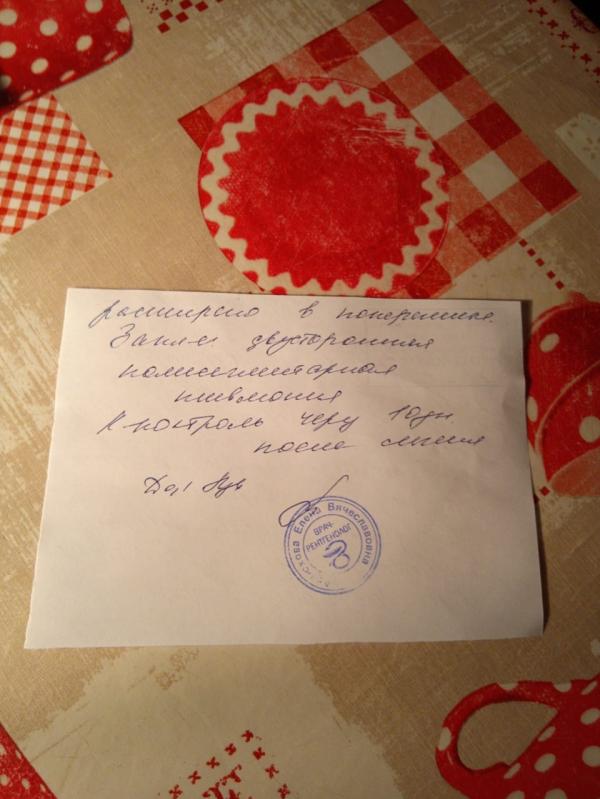 расширено в поперечнике.
Закл-е: двусторонняя
полисегментарная
пневмония
R-контроль через 10дн.
после лечения
Елена Вячеславовна
ВРАЧ-
РЕНТГЕНОЛОГ